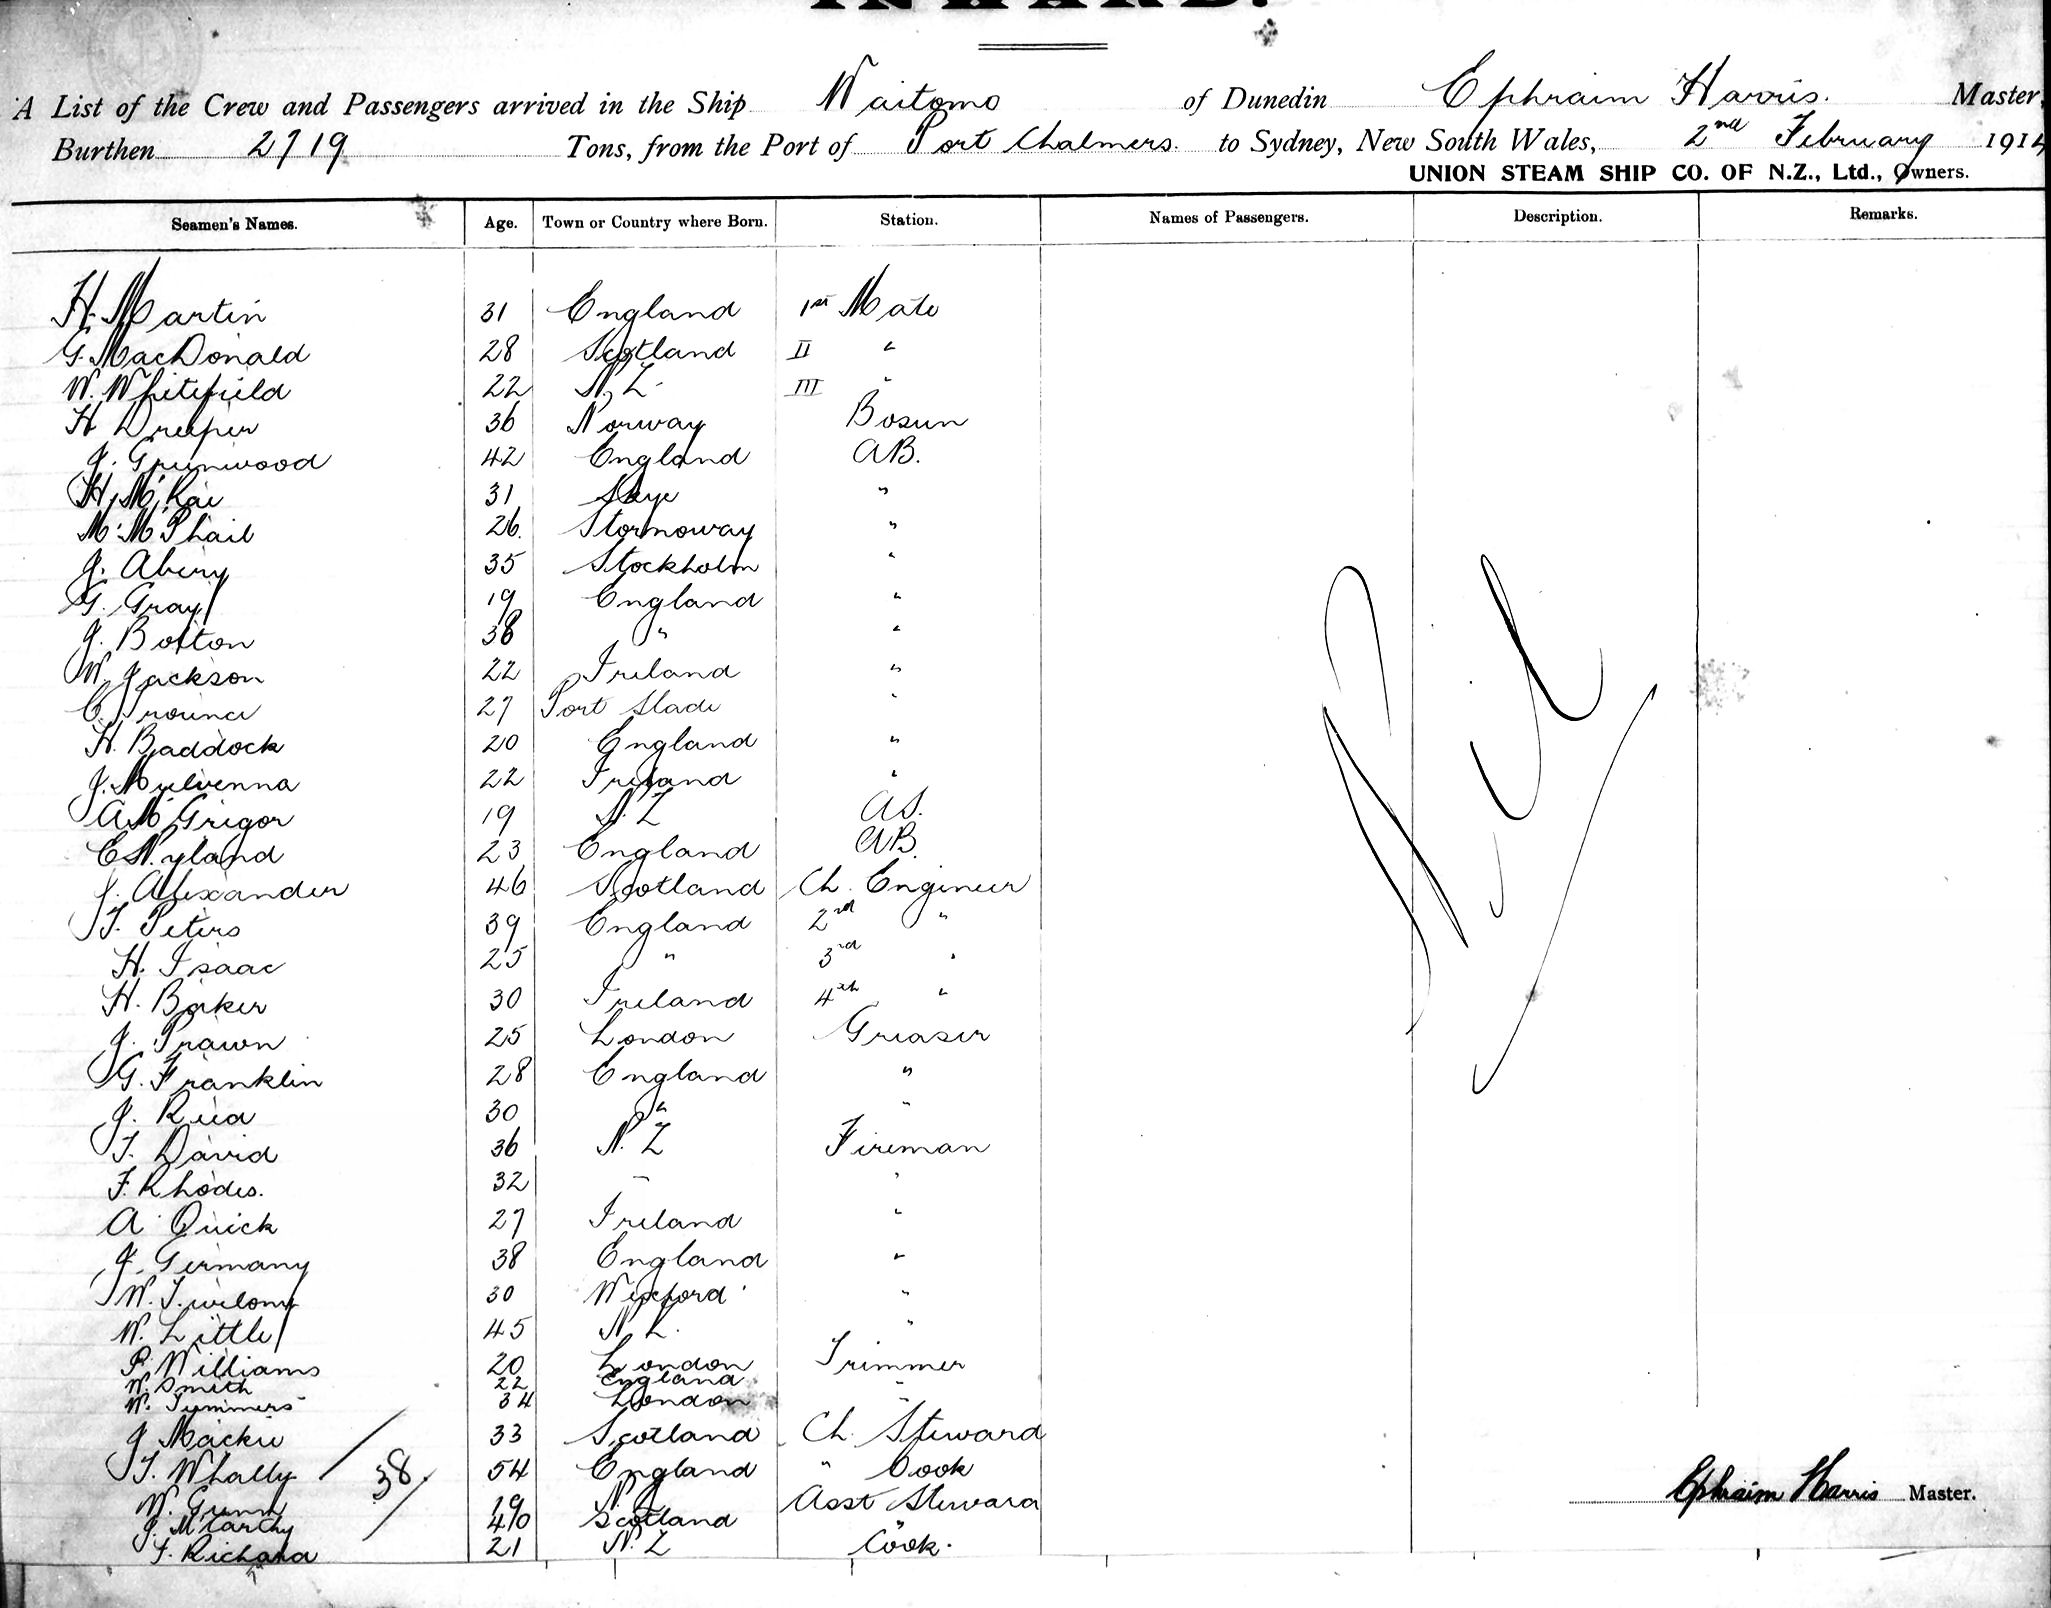 INWARD.
A List of the Crew and Passengers arrived in the Ship Waitomo of Dunedin Ephraim Harris. Master,
Burthen 2719 Tons, from the Port of Port Chalmers. to Sydney, New South Wales, 2nd February 1914
UNION STEAM SHIP CO. OF N.Z., Ltd., Owners.
Seamen's Names. Age. Town or Country where Born. Station. Names of Passengers. Description. Remarks.
H. Martin 31 England 1st Mate
G. MacDonald 28 Scotland II "
W. Whitefield 22 N.Z. III "
H Dreeper 36 Norway Bosun
J. Grunwood 42 England AB.
H. McRae 31 Skye "
M. McPhail 26. Stornoway "
J. Abery 35 Stockholm "
G. Gray 19 England "
J. Bolton 38 " "
W. Jackson 22 Ireland "
C. Prouncе 27 Port Slade "
H. Baddock 20 England "
J. Mulvenna 22 Ireland "
A McGrigor 19 N.Z AS.
C Nyland 23 England AB.
J. Alexander 46 Scotland Ch. Engineer
T. Peters 39 England 2nd "
H. Isaac 25 " 3rd "
H. Barker 30 Ireland 4th "
J. Prawn 25 London Greaser
G. Franklin 28 England "
J. Reed 30 " "
T. David 36 N.Z Fireman
F. Rhodes. 32 " "
A Quick 27 Ireland "
J. Germany 38 England "
W. 30 Wexford "
W. Little 45 N.Z. "
P. Williams 20 London Trimmer
W. Smith 22 England "
W. Symmers 34 London "
J Mackie 33 Scotland Ch. Steward
T. Whally 54 England " Cook
38
W. Gunn 19 N.Z Asst Steward
J. McCarthy 40 Scotland "
F. Richard 21 N.Z Cook.
Nil
Ephraim Harris Master.